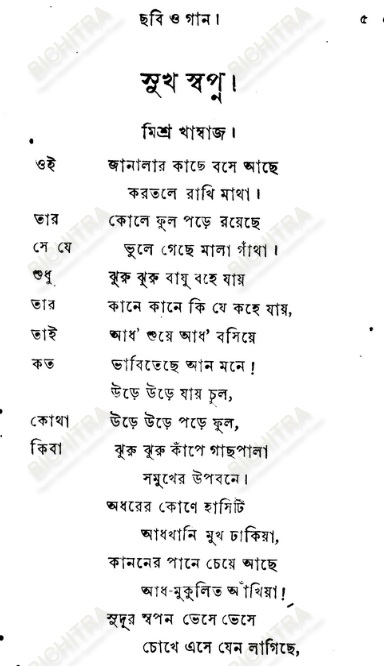 ছবি ও গান। ৫
সুখ স্বপ্ন।
মিশ্র খাম্বাজ।
ওই জানালার কাছে বসে আছে
করতলে রাখি মাথা।
তার কোলে ফুল পড়ে রয়েছে
সে যে ভুলে গেছে মালা গাঁথা।
শুধু ঝুরু ঝুরু বায়ু বহে যায়
তার কানে কানে কি যে কহে যায়,
তাই আধ' শুয়ে আধ' বসিয়ে
কত ভাবিতেছে আন মনে!
উড়ে উড়ে যায় চুল,
কোথা উড়ে উড়ে পড়ে ফুল,
কিবা ঝুরু ঝুরু কাঁপে গাছপালা
সমুখের উপবনে।
অধরের কোণে হাসিটি
আধখানি মুখ ঢাকিয়া,
কাননের পানে চেয়ে আছে
আধ-মুকুলিত আঁখিয়া!
সুদূর স্বপন ভেসে ভেসে
চোখে এসে যেন লাগিছে,
BICHITRA
BICHITRA
BICHITRA
BICHITRA
BICHITRA
BICHITRA